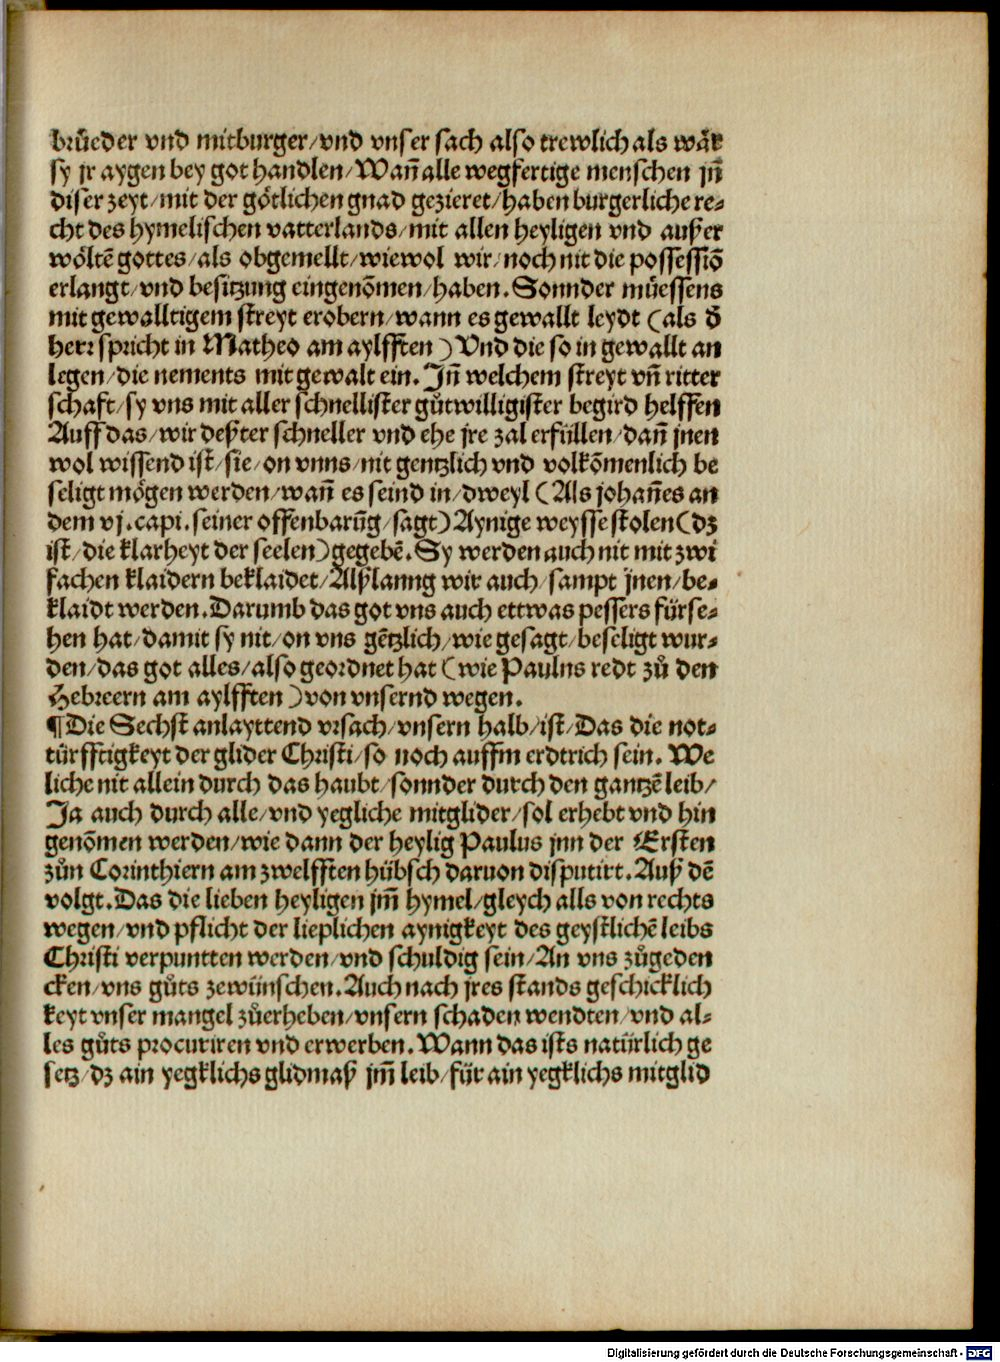 bruͤeder vnd mitburger/vnd vnser sach also trewlich als waͤr
sy jr aygen bey got handlen/Wann̄ alle wegfertige menschen jn̄
diser zeyt/mit der goͤtlichen gnad gezieret/haben burgerliche re⸗
cht des hymelischen vatterlands/mit allen heyligen vnd außer
woͤltē gottes/als obgemellt/wiewol wir/noch nit die possessiō
erlangt/vnd besitzung eingenōmen/haben. Sonnder muͤessens
mit gewalltigem streyt erobern/wann es gewallt leydt (als d̄
herr spricht in Matheo am aylfften) Vnd die so in gewallt an
legen/die nements mit gewalt ein. Jn̄ welchem streyt vn̄ ritter
schaft/sy vns mit aller schnellister guͤtwilligister begird helffen
Auff das/wir deßter schneller vnd ehe jre zal erfüllen/dan̄ jnen
wol wissend ist/sie/on vnns/nit gentzlich vnd volkōmenlich be
seligt moͤgen werden/wan̄ es seind in/dweyl (Als johan̄es an
dem vj. capi. seiner offenbarūg/sagt) Aynige weysse stolen (dz
ist/die klarheyt der seelen) gegebē. Sy werden auch nit mit zwi
fachen klaidern beklaidet/Alßlanng wir auch/sampt jnen/be⸗
klaidt werden. Darumb das got vns auch ettwas pessers fürse⸗
hen hat/damit sy nit/on vns gētzlich/wie gesagt/beseligt wur⸗
den/das got alles/also geordnet hat (wie Paulus redt zů den
Hebreern am aylfften) von vnsernd wegen.
¶ Die Sechst anlayttend vrsach/vnsern halb/ist/Das die not⸗
türfftigkeyt der glider Christi/so noch auffm erdtrich sein. We
liche nit allein durch das haubt/sonnder durch den gantzē leib/
Ja auch durch alle/vnd yegliche mitglider/sol erhebt vnd hin
genōmen werden/wie dann der heylig Paulus jnn der Ersten
zůn Corinthiern am zwelfften hübsch daruon disputirt. Auß dē
volgt. Das die lieben heyligen jm̄ hymel/gleych alls von rechts
wegen/vnd pflicht der lieplichen aynigkeyt des geystlichē leibs
Christi verpuntten werden/vnd schuldig sein/An vns zůgeden
cken/vns gůts zewünschen. Auch nach jres stands geschicklich
keyt vnser mangel zůerheben/vnsern schaden wendten/vnd al⸗
les gůts procuriren vnd erwerben. Wann das ists natürlich ge
setz/dz ain yegklichs glidmaß jm̄ leib/für ain yegklichs mitglid
Digitalisierung gefördert durch die Deutsche Forschungsgemeinschaft - DFG